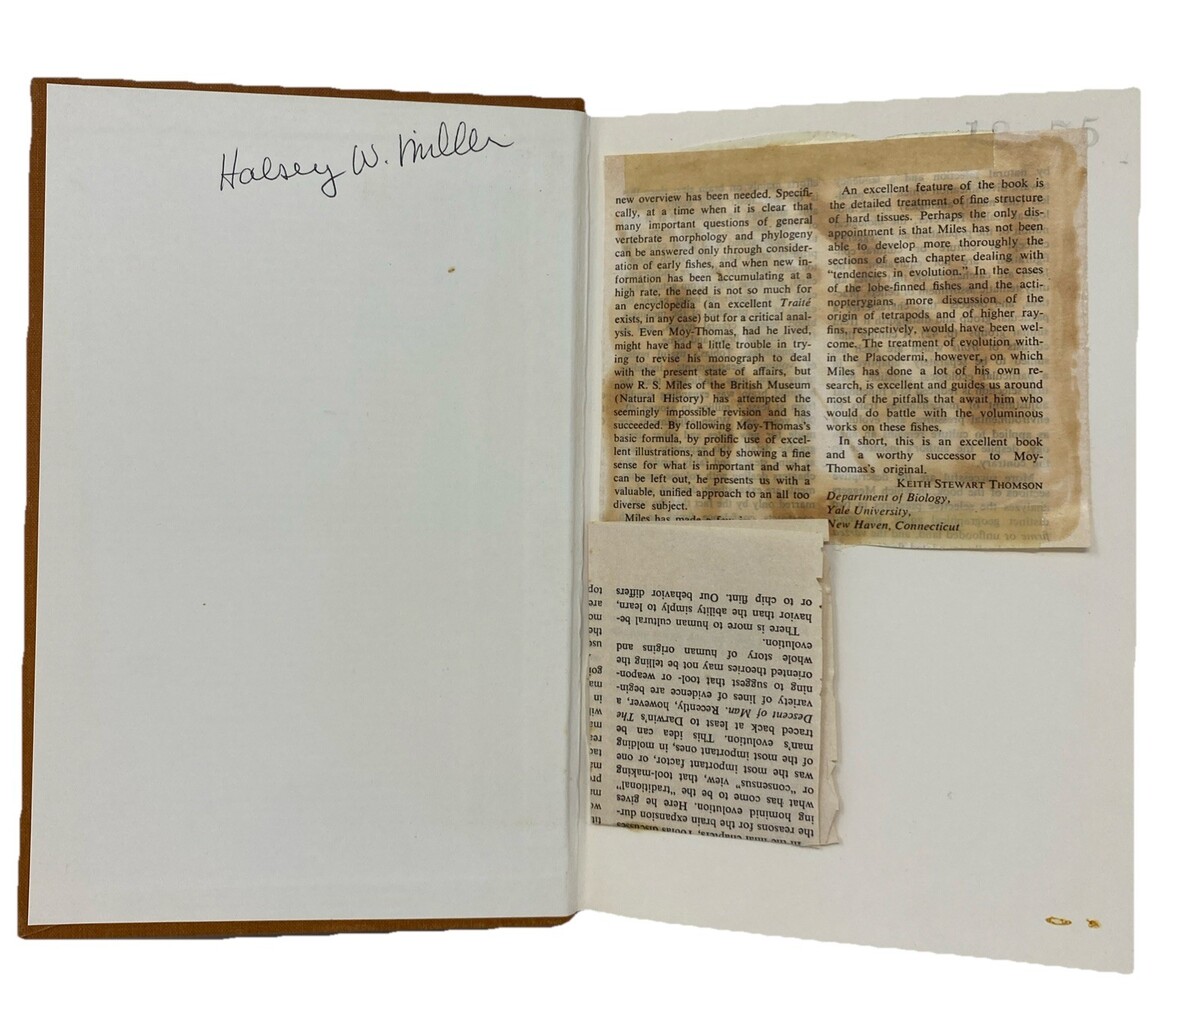 Halsey W. Miller
new overview has been needed. Specifi-
cally, at a time when it is clear that
many important questions of general
vertebrate morphology and phylogeny
can be answered only through consider-
ation of early fishes, and when new in-
formation has been accumulating at a
high rate, the need is not so much for
an encyclopedia (an excellent Traité
exists, in any case) but for a critical anal-
ysis. Even Moy-Thomas, had he lived,
might have had a little trouble in try-
ing to revise his monograph to deal
with the present state of affairs, but
now R. S. Miles of the British Museum
(Natural History) has attempted the
seemingly impossible revision and has
succeeded. By following Moy-Thomas's
basic formula, by prolific use of excel-
lent illustrations, and by showing a fine
sense for what is important and what
can be left out, he presents us with a
valuable, unified approach to an all too
diverse subject.
Miles has made a few
An excellent feature of the book is
the detailed treatment of fine structure
of hard tissues. Perhaps the only dis-
appointment is that Miles has not been
able to develop more thoroughly the
sections of each chapter dealing with
“tendencies in evolution.” In the cases
of the lobe-finned fishes and the acti-
nopterygians, more discussion of the
origin of tetrapods and of higher ray-
fins, respectively, would have been wel-
come. The treatment of evolution with-
in the Placodermi, however, on which
Miles has done a lot of his own re-
search, is excellent and guides us around
most of the pitfalls that await him who
would do battle with the voluminous
works on these fishes.
In short, this is an excellent book
and a worthy successor to Moy-
Thomas's original.
KEITH STEWART THOMSON
Department of Biology,
Yale University,
New Haven, Connecticut
the reasons for the brain expansion dur-
ing hominid evolution. Here he gives
what has come to be the “traditional”
or “consensus” view, that tool-making
was the most important factor, or one
of the most important ones, in molding
man's evolution. This idea can be
traced back at least to Darwin's The
Descent of Man. Recently, however, a
variety of lines of evidence are begin-
ning to suggest that tool- or weapon-
oriented theories may not be telling the
whole story of human origins and
evolution.
There is more to human cultural be-
havior than the ability simply to learn,
or to chip flint. Our behavior differs